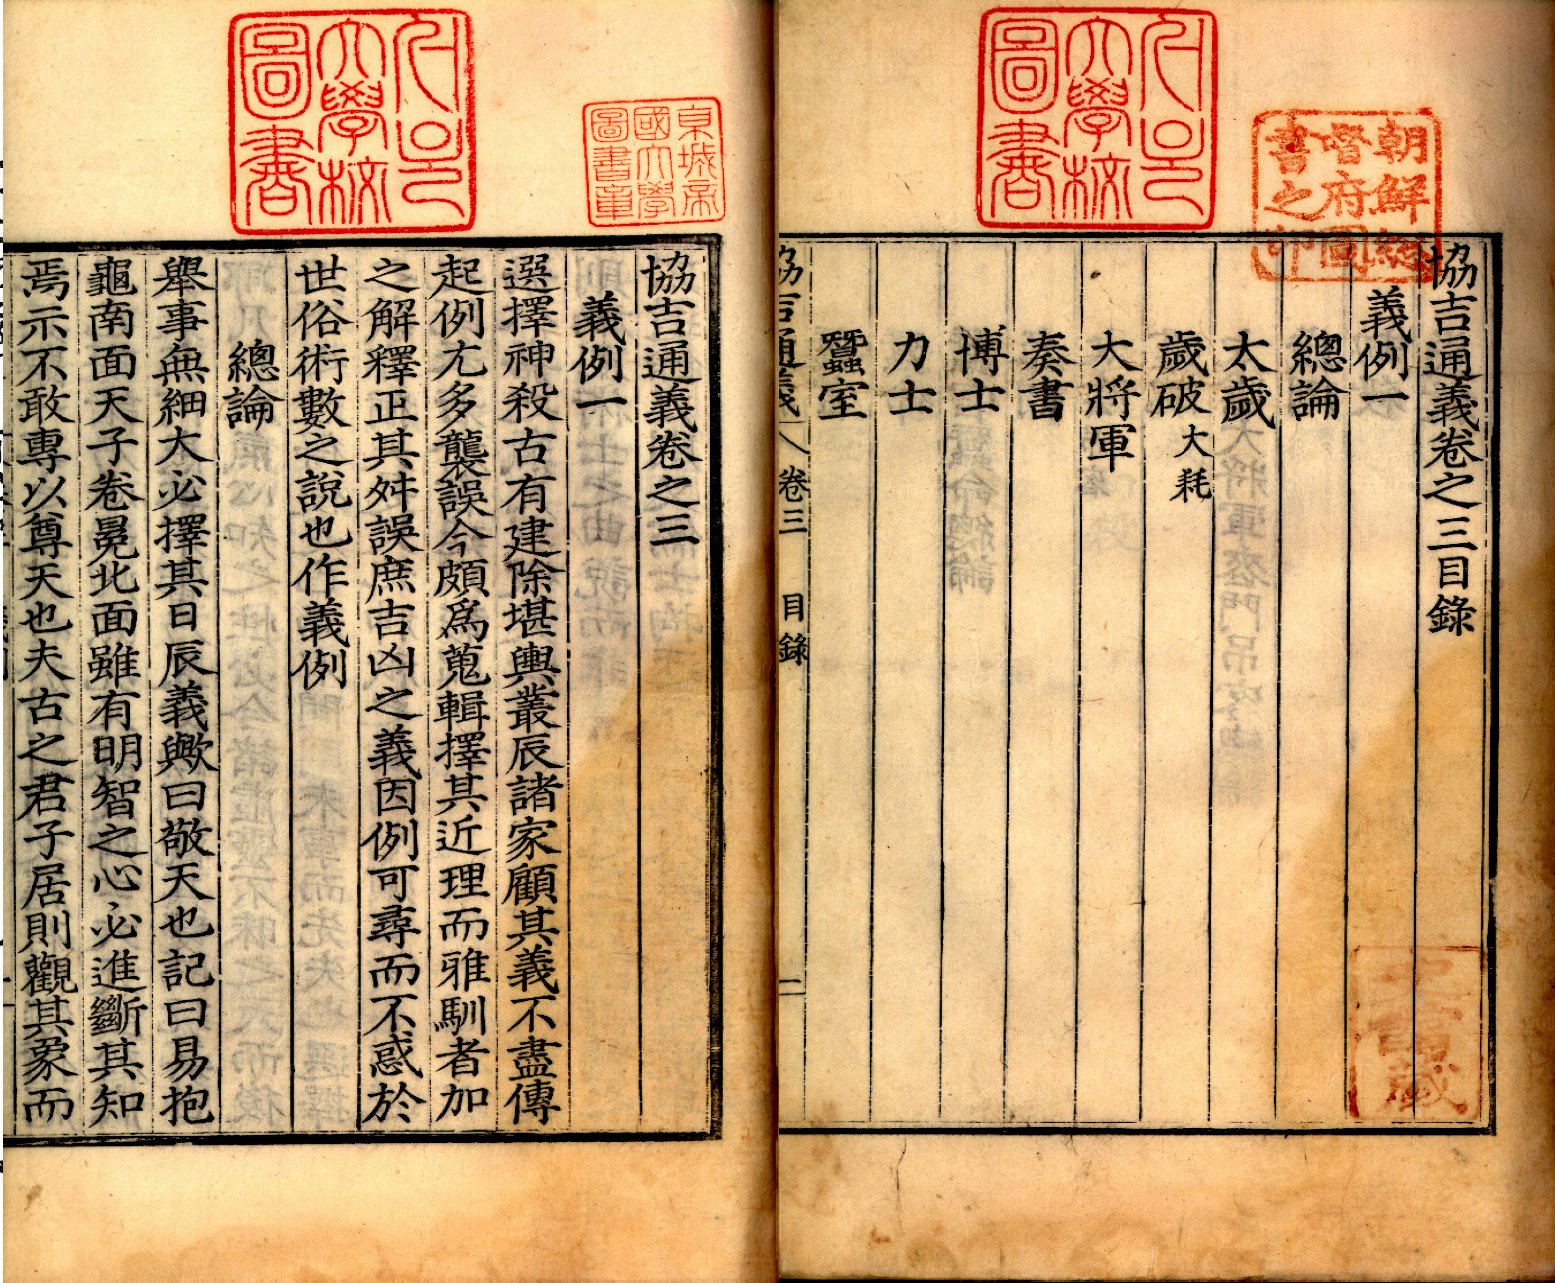 協吉通義卷之三目錄
義例一
總論
太歲
歲破大耗
大將軍
奏書
博士
力士
蠶室
協吉通義 卷三 目錄 一
協吉通義卷之三
義例一
選擇神殺古有建除堪輿叢辰諸家顧其義不盡傳
起例尤多襲誤今頗爲蒐輯擇其近理而雅馴者加
之解釋正其舛誤庶吉凶之義因例可尋而不惑於
世俗術數之說也作義例
總論
舉事無細大必擇其日辰義歟曰敬天也記曰易抱
龜南面天子卷冕北面雖有明智之心必進斷其知
焉示不敢專以尊天也夫古之君子居則觀其象而
朝鮮總
督府圖
書之印
京城帝
國大學
圖書章
大學校
圖書
藏